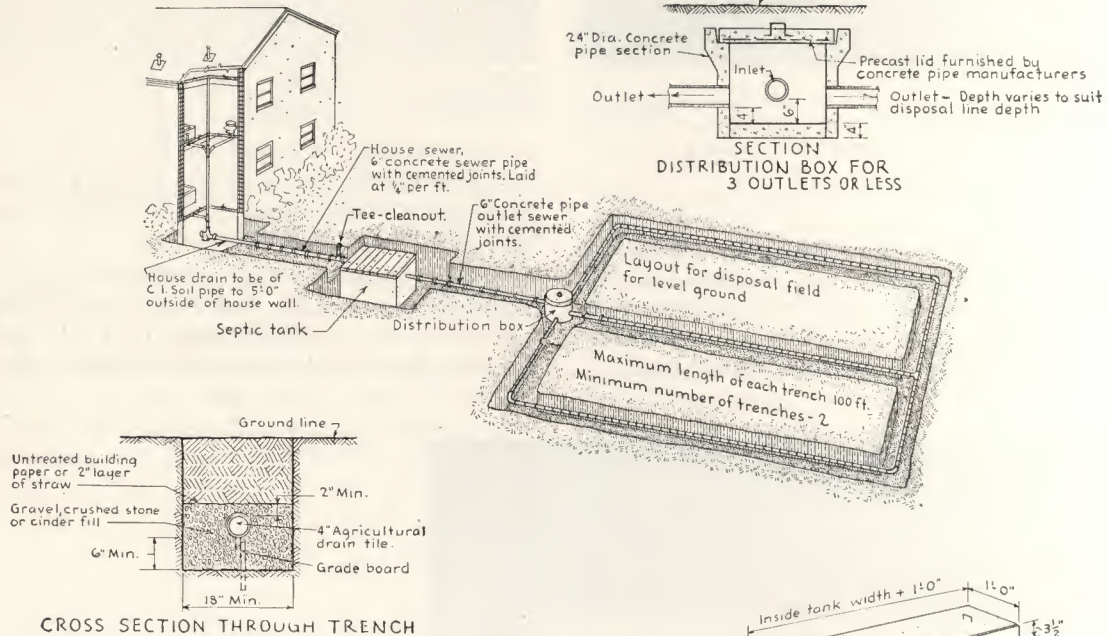 24" Dia. Concrete
pipe section
Inlet
Precast lid furnished by
concrete pipe manufacturers
Outlet
Outlet - Depth varies to suit
disposal line depth
4"
6"
4"
SECTION
DISTRIBUTION BOX FOR
3 OUTLETS OR LESS
House sewer,
6" concrete sewer pipe
with cemented joints. Laid
at 1/4" per ft.
Tee-cleanout.
6" Concrete pipe
outlet sewer
with cemented
joints.
House drain to be of
C.I. Soil pipe to 5'-0"
outside of house wall.
Septic tank
Distribution box
Layout for disposal field
for level ground
Maximum length of each trench 100 ft.
Minimum number of trenches - 2
Ground line
Untreated building
paper or 2" layer
of straw
2" Min.
Gravel, crushed stone
or cinder fill
4" Agricultural
drain tile.
6" Min.
Grade board
18" Min.
CROSS SECTION THROUGH TRENCH
Inside tank width + 1'-0"
1'-0"
3 1/2"